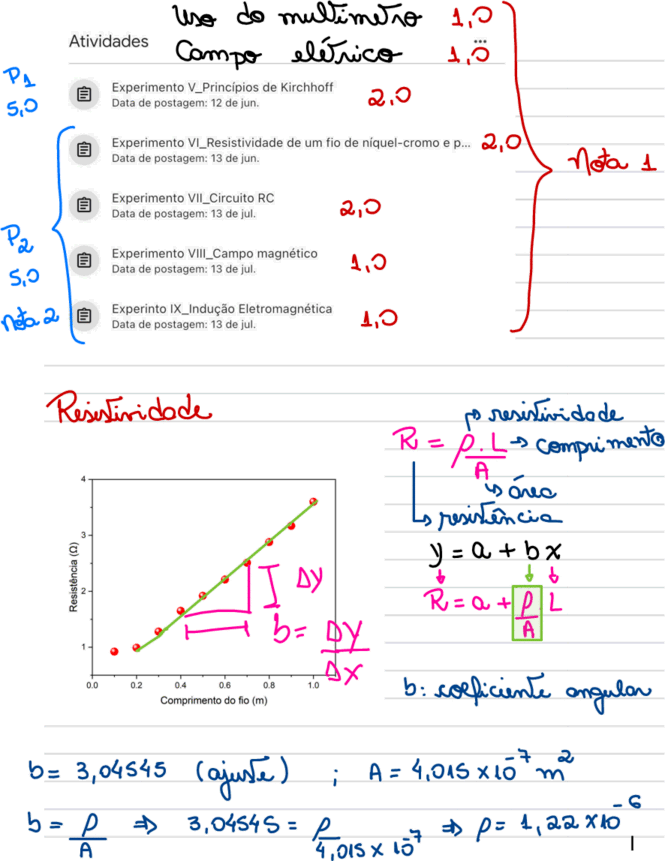 Uso do multímetro 1,0
Atividades
Campo elétrico 1,0
P1
5,0
Experimento V_Princípios de Kirchhoff
Data de postagem: 12 de jun.
2,0
Experimento VI_Resistividade de um fio de níquel-cromo e p...
Data de postagem: 13 de jun.
2,0
Nota 1
Experimento VII_Circuito RC
Data de postagem: 13 de jul.
2,0
P2
5,0
nota 2
Experimento VIII_Campo magnético
Data de postagem: 13 de jul.
1,0
Experinto IX_Indução Eletromagnética
Data de postagem: 13 de jul.
1,0
Resistividade
resistividade
R = ρ.L/A → comprimento
área
resistência
y = a + bx
R = a + ρ/A L
b: coeficiente angular
4
3
2
1
Resistência (Ω)
0.0 0.2 0.4 0.6 0.8 1.0
Comprimento do fio (m)
Δy
b = Δy/Δx
b = 3,04545 (ajuste) ; A = 4,015 x 10⁻⁷ m²
b = ρ/A ⇒ 3,04545 = ρ/4,015 x 10⁻⁷ ⇒ ρ = 1,22 x 10⁻⁶